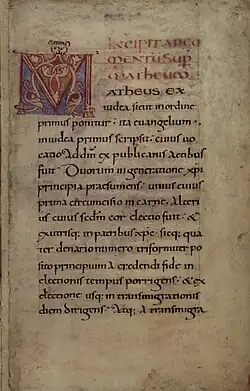 Incipit argu
mentu sup
matheum
Matheus ex
iudea sicut in ordine
primus ponitur · ita euangelium ·
in iudea primus scripsit · cuius uo
catio · ad dm ex publicanis actibus
fuit · Duorum in generatione xpi
principia praesumens · unius cuius
prima circumcisio in carne · Alteri
us cuius scdm cor electio fuit · &
ex utrisq; in patribus xps · sicq; qua
ter denario numero triformiter po
sito principium a credendi fide in
electionis tempus porrigens · & ex
electione usq; in transmigrationis
diem dirigens · Atq; a transmigra